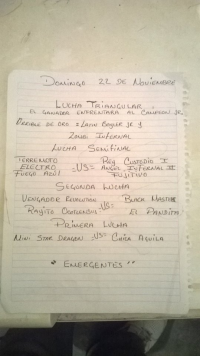 Domingo 22 de Noviembre
Lucha Triangular
El ganador enfrentara al campeon Jr.
Oreble de oro = Lady Boxer Jr y
Zombi Infernal
Lucha Semifinal
Terremoto Rey Custodio I
Electro -VS- Angel Infernal III
Fuego Azul Fujitivo
Segunda Lucha
Vengador Revolution Black Master
-VS-
Rayito Ogarenshi El Pandita
Primera Lucha
Mini Star Dragon -VS- Chica Aguila
* Emergentes **